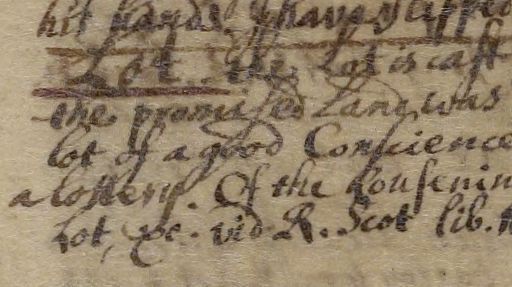 his hands
Lot. the Lot is cast
the promised Land was
lot of a good Conscience
a lottery. Of the Consenin
Lot, &c. vid. R. Scot lib.